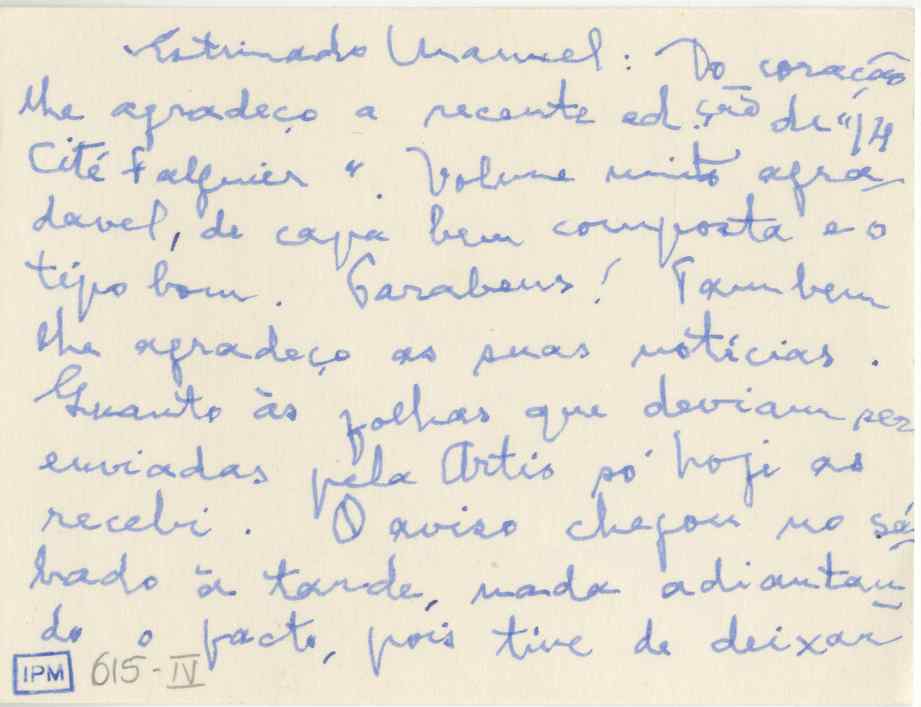 Estimado Manuel: Do coração
lhe agradeço a recente ed.ção de "14
Cité Falguier". Volume muito agra-
davel, de capa bem composta e o
tipo bom. Parabens! Tambem
lhe agradeço as suas notícias.
Quanto às folhas que deviam ser
enviadas pela Artis só hoje as
recebi. O aviso chegou no sá-
bado à tarde, nada adiantan-
do o facto, pois tive de deixar
IPM 615-IV